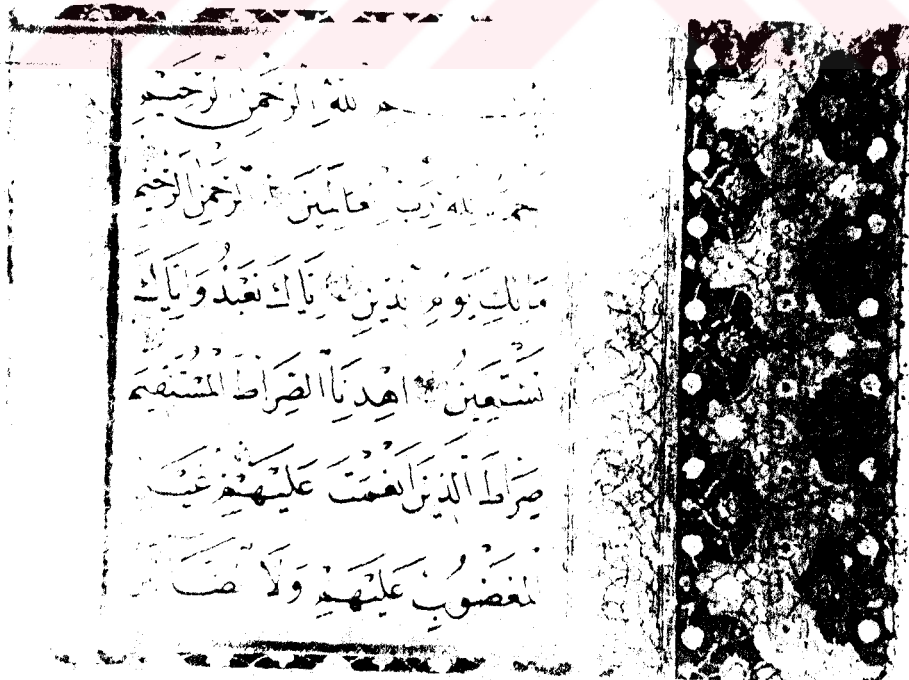 الله الرَّحْمٰنِ الرَّحِيمِ
الحمد لِلّٰهِ رَبِّ الْعَالَمِينَ الرَّحْمٰنِ الرَّحِيمِ
مَالِكِ يَوْمِ الدِّينِ اِيَّاكَ نَعْبُدُ وَاِيَّاكَ
نَسْتَعِينُ اِهْدِنَا الصِّرَاطَ الْمُسْتَقِيمَ
صِرَاطَ الَّذِينَ اَنْعَمْتَ عَلَيْهِمْ غَيْرِ
الْمَغْضُوبِ عَلَيْهِمْ وَلَا